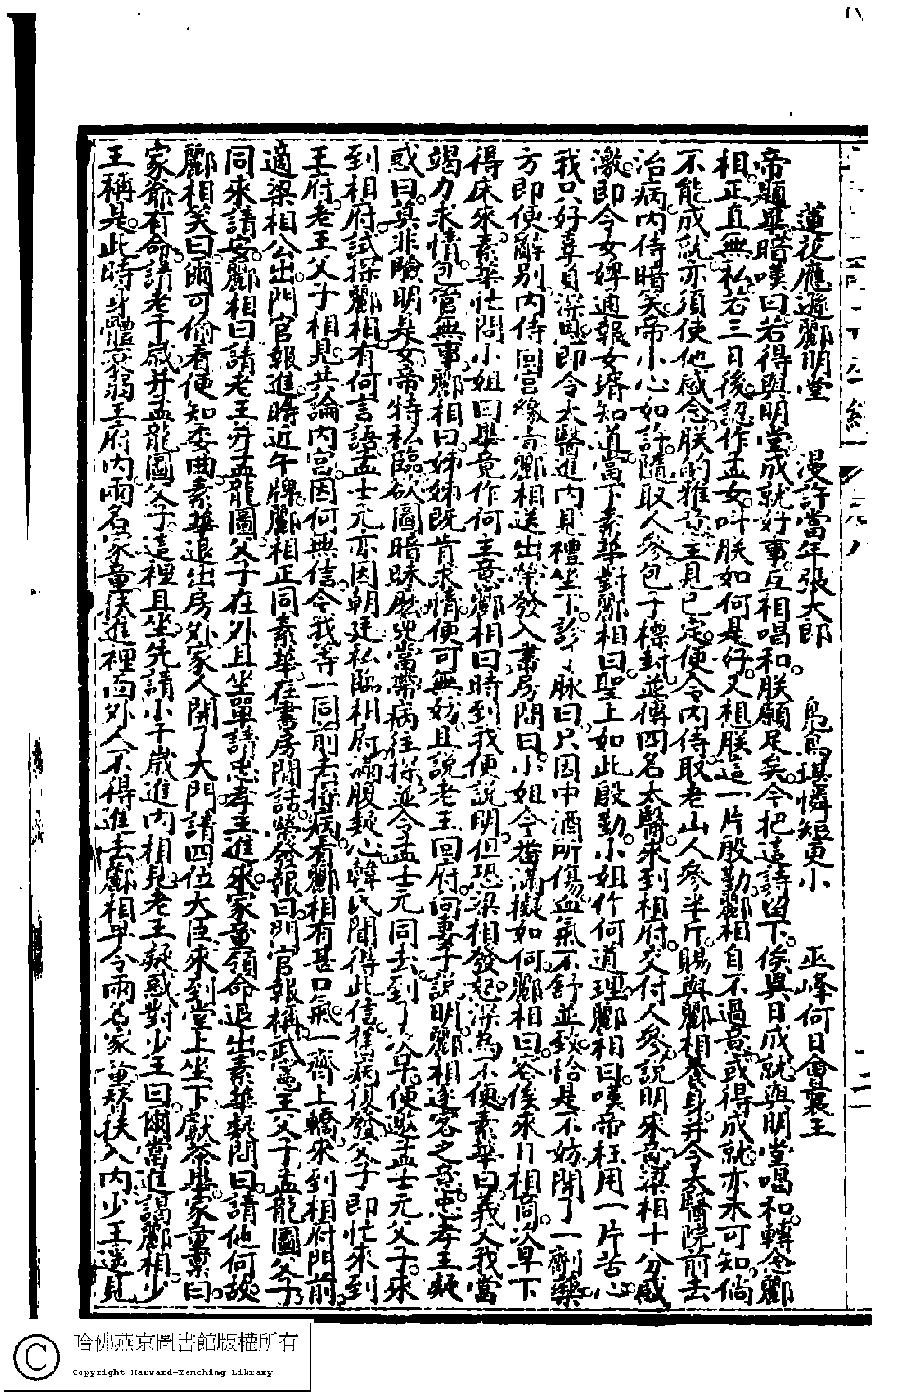 蓮花應遜酈明堂 漫許當年張大郎 烏 琪憐短更小 巫峰何日會襄王
帝題畢暗嘆曰若得與明堂成就好事互相唱和朕願足矣今把這詩留下俟異日成就與明堂唱和轉念酈
相正直無私若三日後認作孟女叫朕如何是好又想朕這一片殷勤酈相自不過意或得成就亦未可知倘
不能成就亦須使他感念朕的雅意主見已定便令內侍取老山人參半斤賜與酈相養身并令太醫院前去
治病內侍暗笑帝小心如許隨取人參包子標封並傳四名太醫來到相府交付人參說明來意梁相十分感
激即令女婢通報女壻知道當下素華對酈相曰聖上如此殷勤小姐作何道理酈相曰嘆帝枉用一片苦心
我只好辜負深恩即令太醫進內見禮坐下診了脉曰只因中酒所傷血氣不舒並致恰是不妨開了一劑藥
方即便辭別內侍回宮繳旨酈相送出榮發入書房問曰小姐今 滿擬如何酈相曰容俟來日相商次早下
得床來素華忙問小姐曰畢竟作何主意酈相曰時到我便說明但恐梁相發怒深為不便素華曰義父我當
竭力求情包管無事酈相曰姊姊既肯求情便可無妨且說老王回府向妻子說明酈相逐客之意忠孝王疑
惑曰莫非驗明是女帝特私臨欲圖暗昧麼 當帶病往探並令孟士元同去到了次早便邀孟士元父子來
到相府試探酈相有何言語孟士元亦因朝廷私臨相府滿腹疑心韓氏聞得此信舊病復發父子即忙來到
王府老王父子相見共論內宮因何無信令我等一同前去探病看酈相有甚口氣一齊上轎來到相府門前
適梁相公出門官報進時近午牌酈相正同素華在書房閒話榮發報曰門官報稱武憲王父子孟龍圖父子
同來請安酈相曰請老王并孟龍圖父子在外且坐單請忠孝王進來家童領命退出素華疑問曰請他何故
酈相笑曰爾可偷看便知委曲素華退出房外家人開了大門請四位大臣來到堂上坐下獻茶畢家童稟曰
家爺有命請老千歲并孟龍圖父子這裡且坐先請小千歲進內相見老王疑惑對少王曰爾當進謁酈相少
王稱是此時身體衰弱王府內兩名家童扶進裡面外人不得進去酈相早令兩名家童 扶入內少王遙見
哈佛燕京圖書館版權所有
Copyright Harvard-Yenching Library